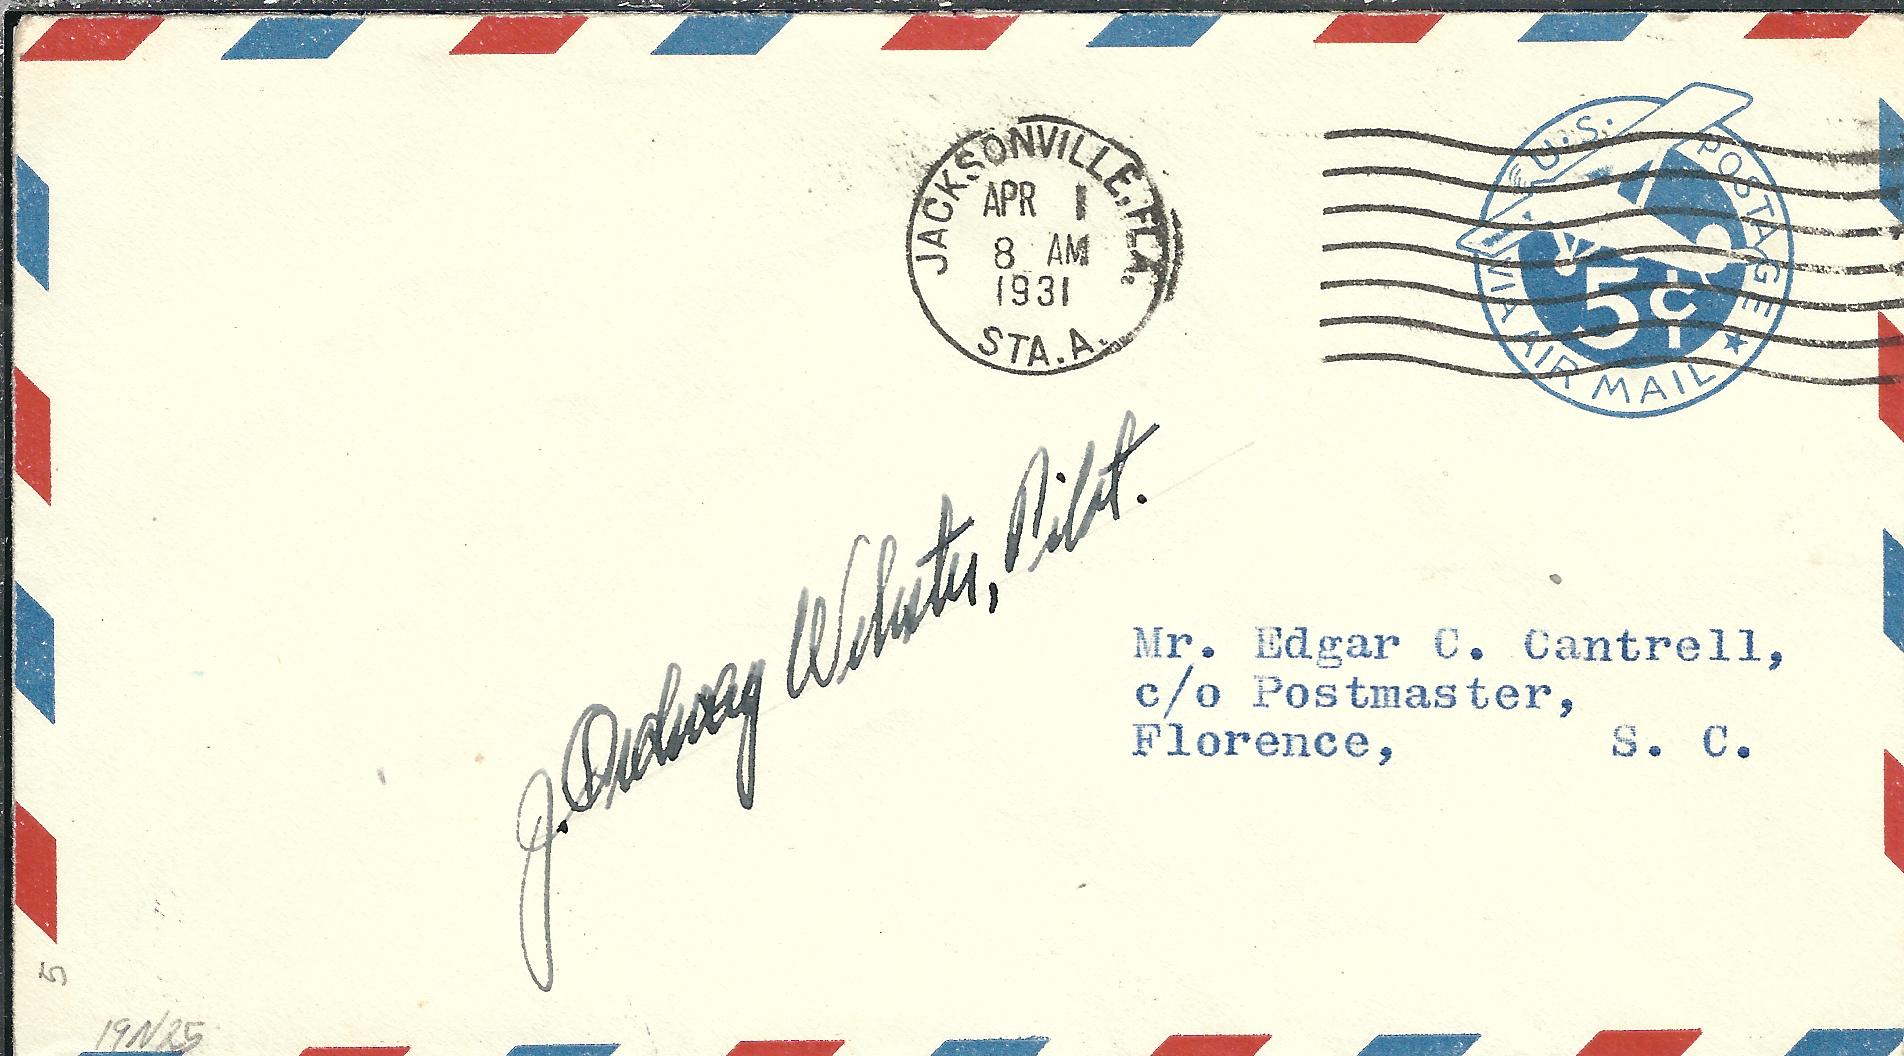 JACKSONVILLE, FLA.
APR 1
8 AM
1931
STA. A.
U.S. POSTAGE
5¢
VIA AIR MAIL
J. Ordway Webster, Pilot.
Mr. Edgar C. Cantrell,
c/o Postmaster,
Florence, S. C.
5
19N25